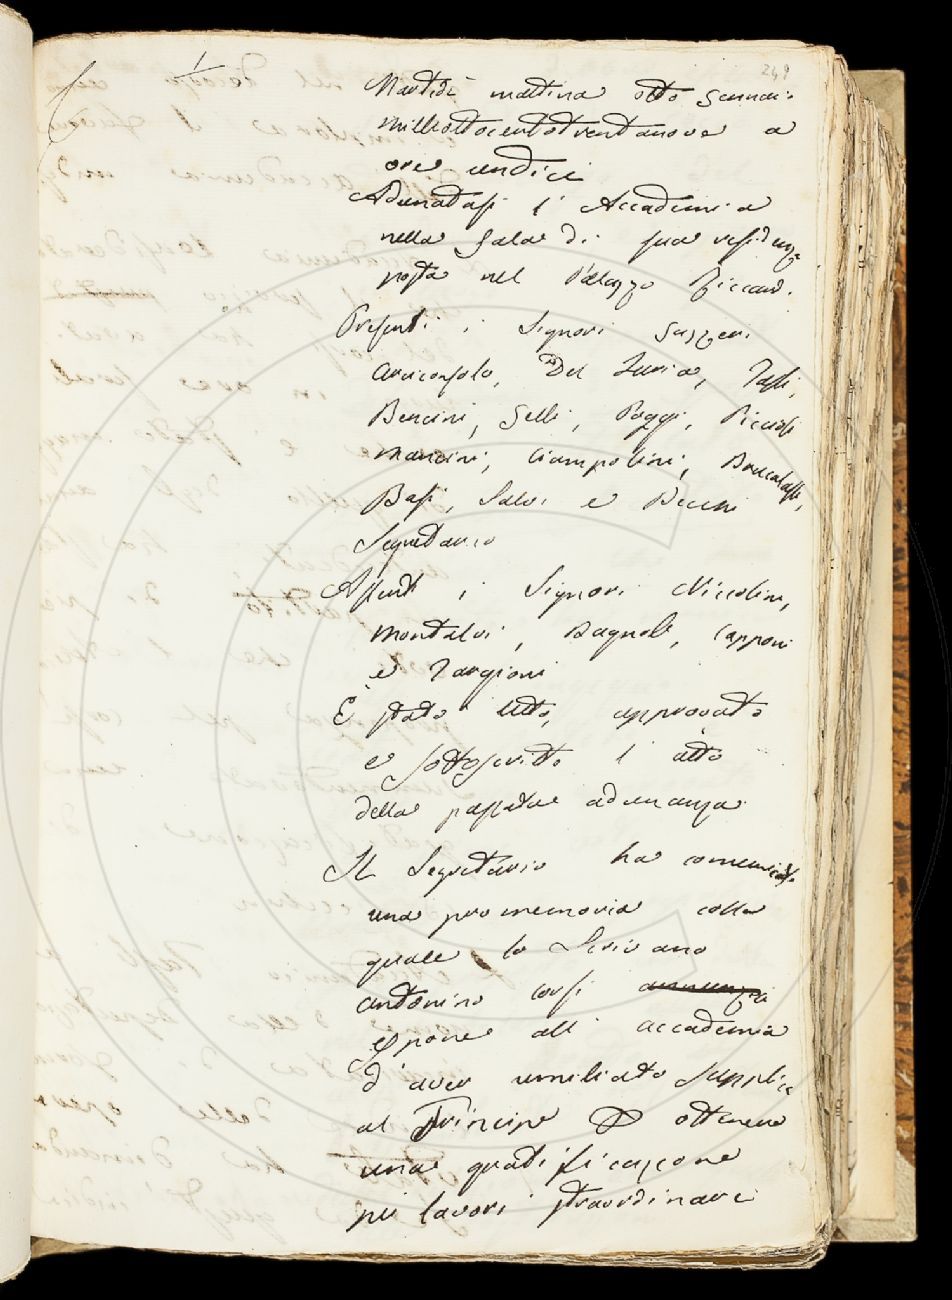 249
Martedì mattina otto Gennai.
milleottocentotrentanove a
ore undici
Adunatasi l'Accademia
nella Sala di sua residenza
posta nel Palazzo Riccardi.
Presenti i Signori Gazzeri
arciconsolo, Del Furia, Tassi,
Bencini, Gelli, Poggi, Piccioli
Mancini, Ciampolini, Brucalassi,
Basi, Salvi e Becchi
Segretario
Assenti i Signori Niccolini,
Montalvi, Bagnoli, Capponi
e Targioni
È stato letto, approvato
e sottoscritto l'atto
della passata adunanza
Il Segretario ha comunicato
una promemoria colla
quale lo Scrivano
Antonino Corsi
espone all' accademia
d'aver umiliato supplica
al Principe per ottenere
una gratificazione
pei lavori straordinari